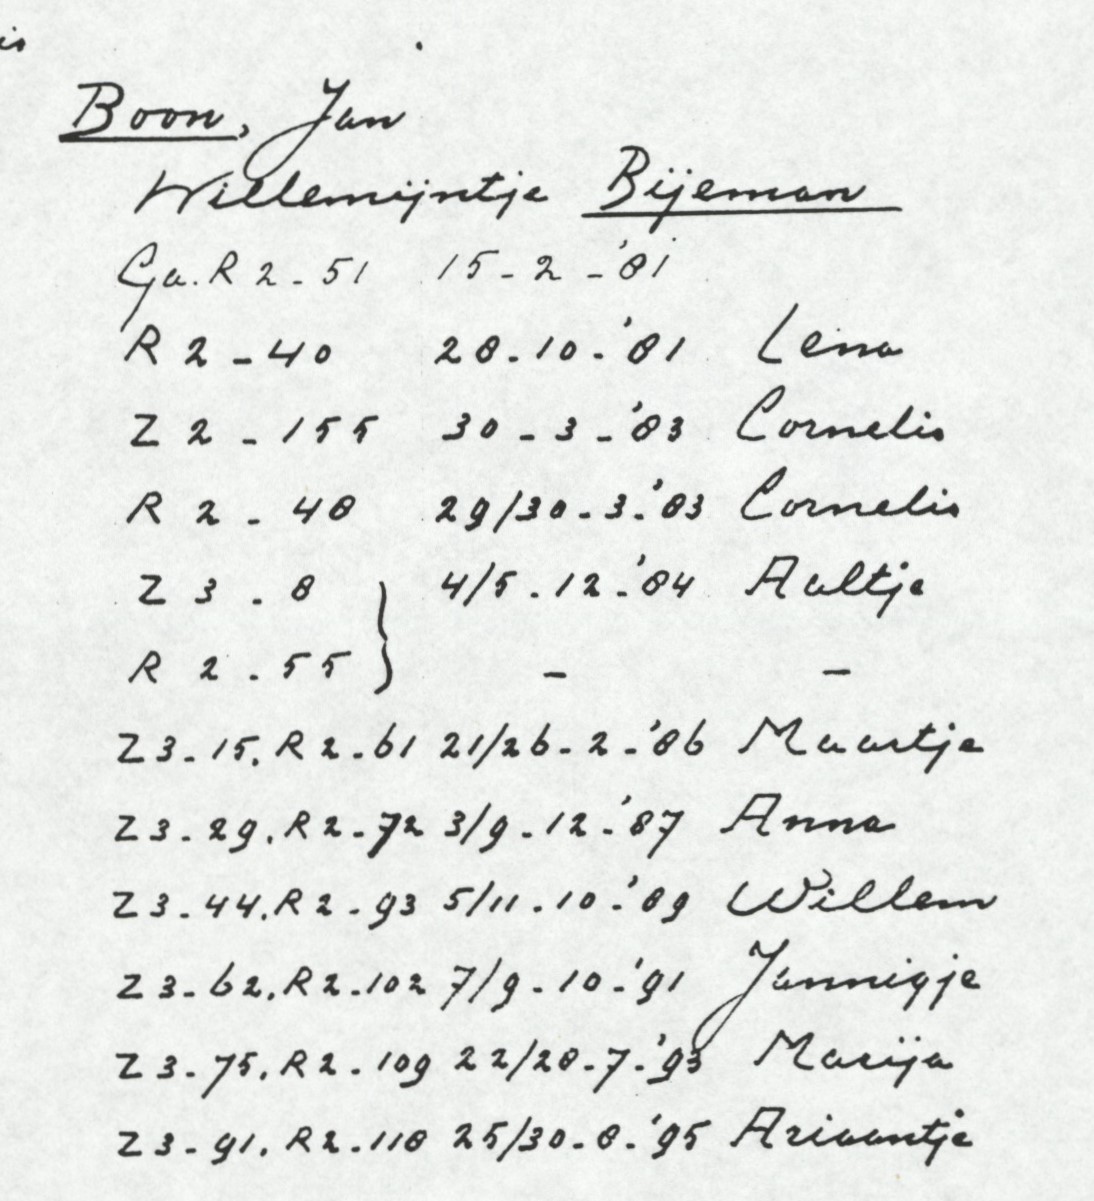 is
Boon, Jan
Willemijntje Bijeman
Ga. R 2 - 51 15 - 2 - '81
R 2 - 40 28 - 10 - '81 Lena
Z 2 - 155 30 - 3 - '83 Cornelis
R 2 - 48 29/30 - 3 - '83 Cornelis
Z 3 - 8 } 4/5 - 12 - '84 Aaltje
R 2 - 55 } - -
Z 3 - 15, R 2 - 61 21/26 - 2 - '86 Maartje
Z 3 - 29, R 2 - 72 3/9 - 12 - '87 Anna
Z 3 - 44, R 2 - 93 5/11 - 10 - '89 Willem
Z 3 - 62, R 2 - 102 7/9 - 10 - '91 Jannigje
Z 3 - 75, R 2 - 109 22/28 - 7 - '93 Marija
Z 3 - 91, R 2 - 118 25/30 - 8 - '95 Ariaantje